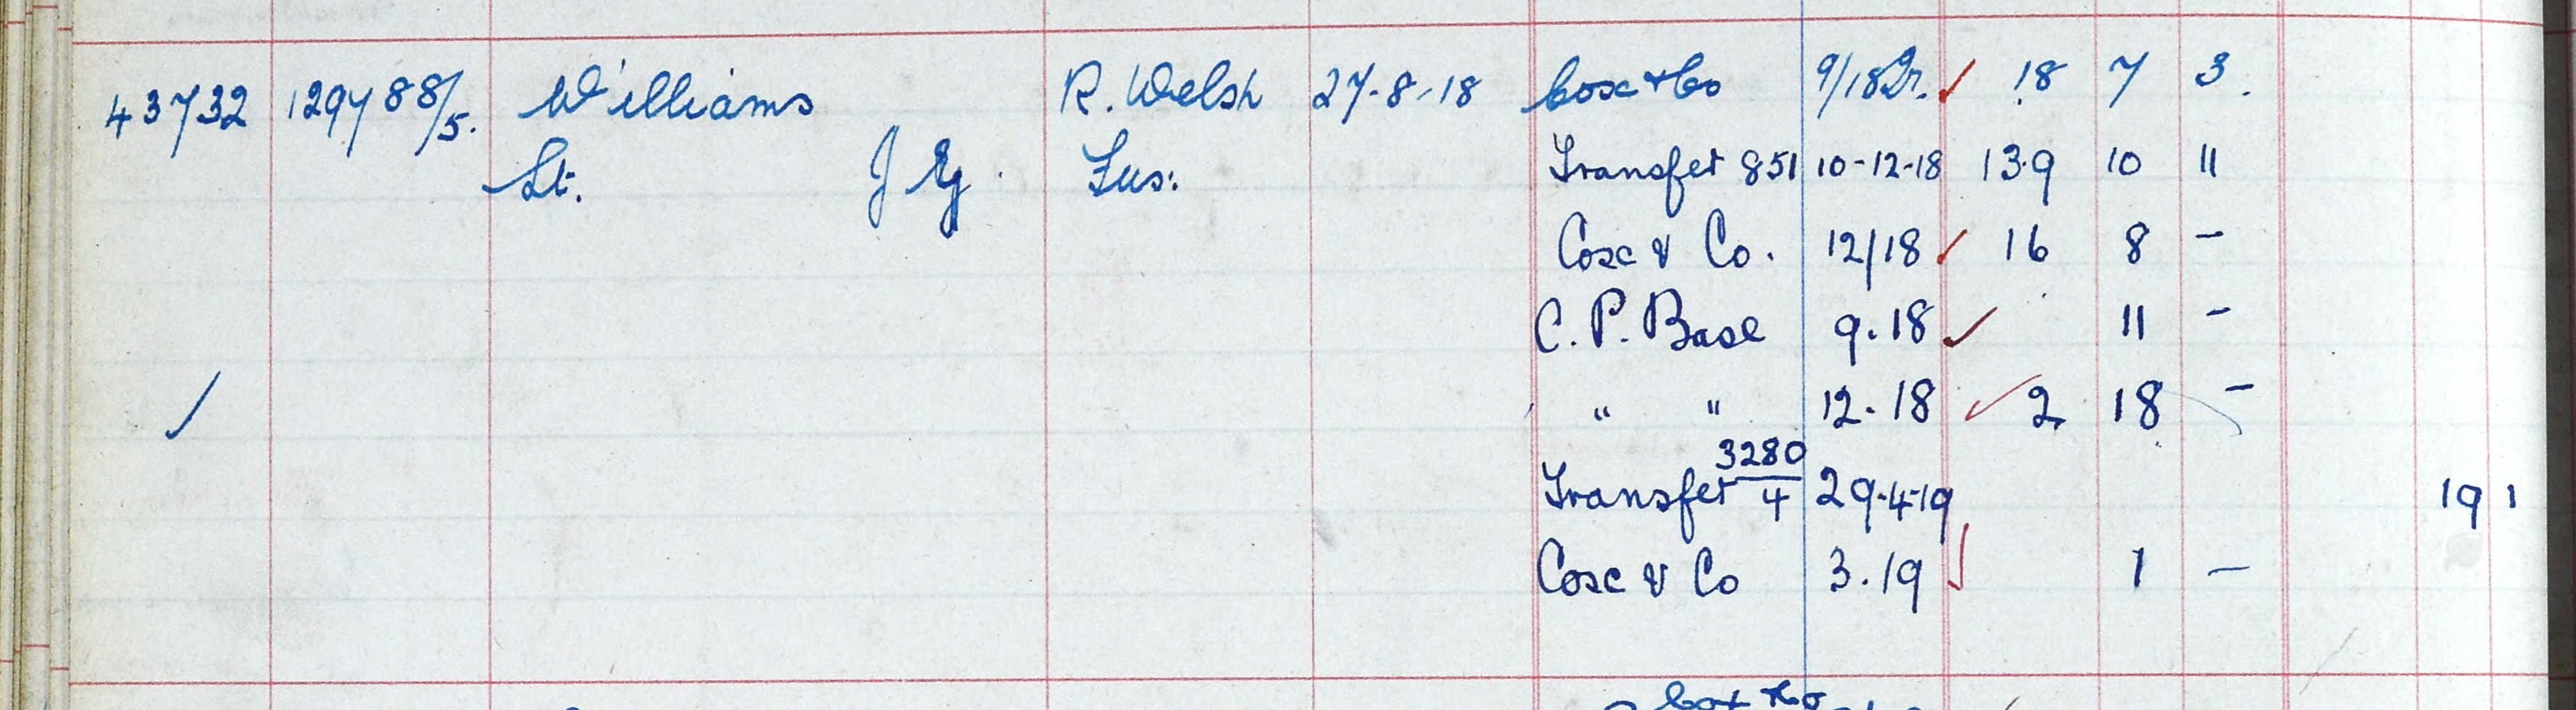 43732 129788/5. Williams R. Welsh 27-8-18 Cox & Co 9/18 Dr. ✓ 18 7 3.
Lt. J G. Fus. Transfer 851 10-12-18 139 10 11
Cox & Co. 12/18 ✓ 16 8 -
C. P. Base 9.18 ✓ 11 -
" " 12.18 ✓ 2 18 -
Transfer 3280/4 29-4-19 19 1
Cox & Co 3.19 ✓ 1 -
Cox & Co